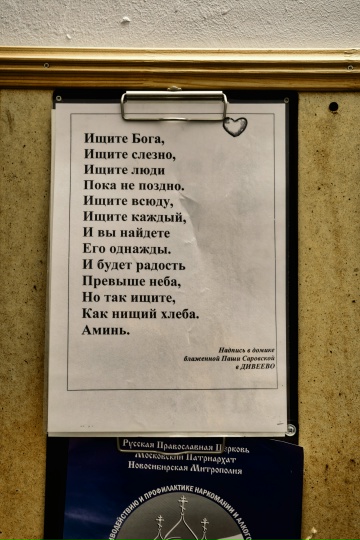 Ищите Бога,
Ищите слезно,
Ищите люди
Пока не поздно.
Ищите всюду,
Ищите каждый,
И вы найдете
Его однажды.
И будет радость
Превыше неба,
Но так ищите,
Как нищий хлеба.
Аминь.
Надпись в домике
блаженной Паши Саровской
в ДИВЕЕВО
Русская Православная Церковь
Московский Патриархат
Новосибирская Митрополия
ВОДЕЙСТВИЮ И ПРОФИЛАКТИКЕ НАРКОМАНИИ И АЛКОГО